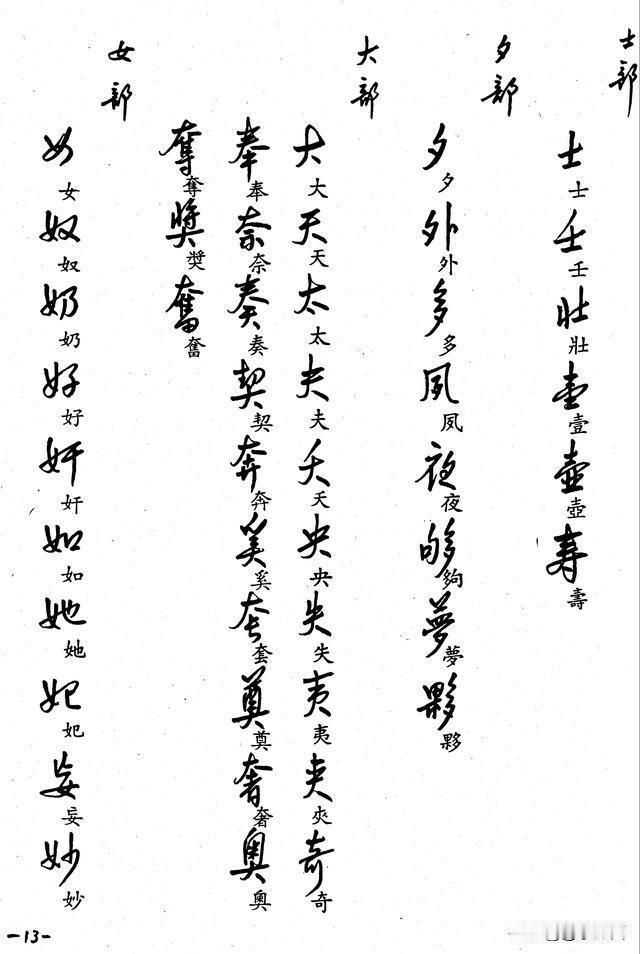 士部
士士壬壬壯壯壹壹壺壺寿壽
夕部
夕夕外外多多夙夙夜夜够夠夢夢夥夥
大部
大大天天太太夫夫夭夭央央失失夷夷夾夾奇奇
奉奉奈奈奏奏契契奔奔奚奚套套奠奠奢奢奥奧
奪奪奬奬奮奮
女部
女女奴奴奶奶好好奸奸如如她她妃妃妄妄妙妙
-13-